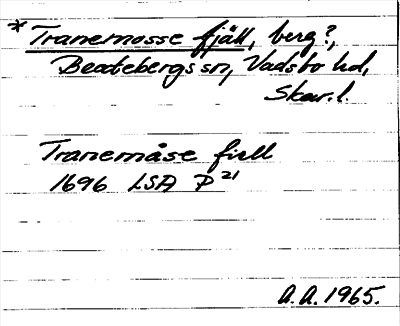 * Tranemosse fjäll, berg?,
Beatebergs sn, Vadsbo hd,
Skar. l.
Tranemåse fiell
1696 LSA P 21
A.A. 1965.